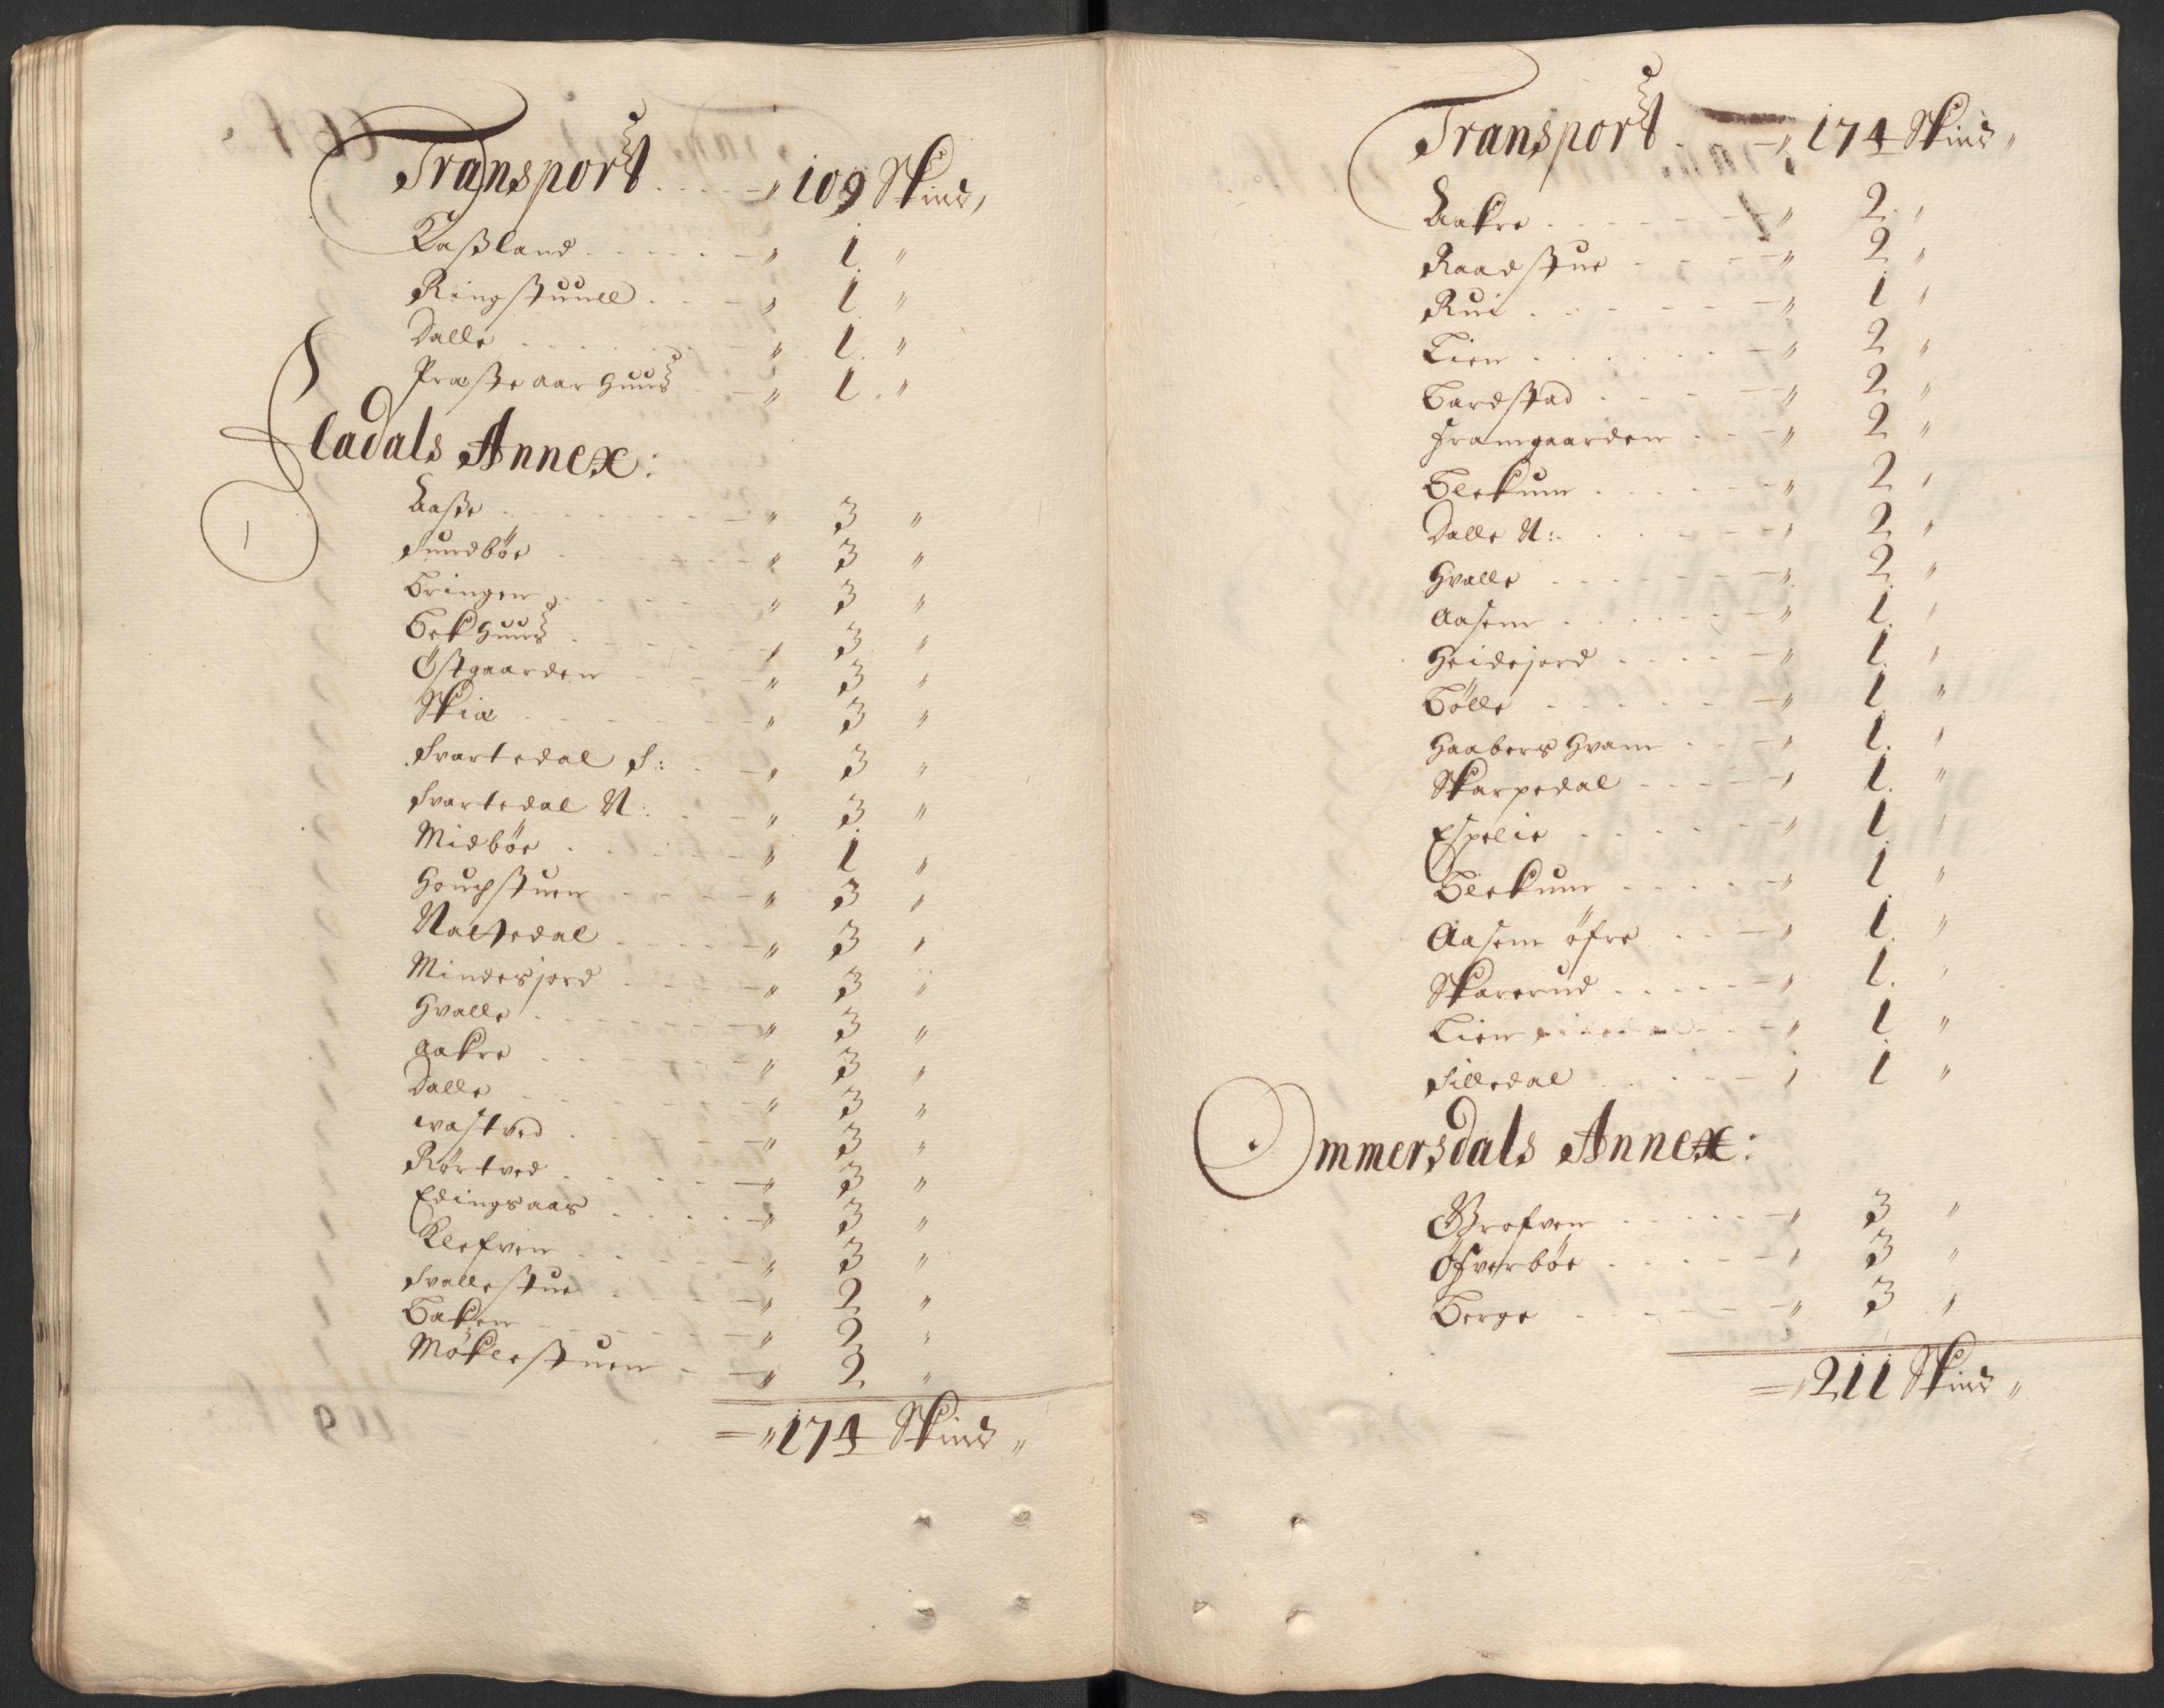 Transport . . . . — „ 109 Skind,
Kaßland . . . . . — „ 1 „
Ringstuull . . . — „ 1 „
Dalle . . . . . . „ 1. „
Præste aarhuus — „ 1. „
Fladals Annex:
Aaße . . . . . . . — „ 3 „
Sundbøe . . . . — „ 3 „
Bringen . . . . — „ 3 „
Bekhuus . . . . — „ 3 „
Østgaarden . . — „ 3 „
Skiæ . . . . . — „ 3 „
Svartedal S: . — „ 3 „
Svartedal N: . — „ 3 „
Midbøe . . . . — „ 1 „
Hougstuen . . . — „ 3 „
Naltedal . . . . — „ 3 „
Mindesjord . . . — „ 3 „
Hvalle . . . . . — „ 3 „
Aakre . . . . . — „ 3 „
Dalle . . . . . — „ 3 „
Wastved . . . . — „ 3 „
Rørtved . . . . — „ 3 „
Edingsaas . . . . — „ 3 „
Klefven . . . . — „ 3 „
Svallestue . . . — „ 2 „
Bakken — — — — „ 2 „
Møklestuen — — „ 2 „
= „ 174 Skind „
Transport . — „ 174 Skind „
Aakre . . . . . — „ 2. „
Raadstue . . . — „ 2 „
Rui . . . . . — „ 1 „
Lien . . . . . — „ 2 „
Bardstad . . . — „ 2 „
Framgaarden . . — „ 2 „
Blekum . . . . — „ 2 „
Dalle N: . . . — „ 2 „
Hvalle . . . . — „ 2 „
Aasem . . . . . — „ 1. „
Heidejord . . . — „ 1. „
Bølle . . . . . — „ 1. „
Haabers Hvam . . — „ 1. „
Skarpedal . . . — „ 1. „
Espelie . . . . — „ 1 „
Blekum . . . . — „ 1 „
Aasem øfre . . — „ 1. „
Skarerud . . . . — „ 1. „
Lien . . — „ 1 „
Silledal . . . — „ 1 „
Ommersdals Annex:
Grofven . . . . — „ 3 „
Øfverbøe . . . — „ 3 „
Berge . . . . . — „ 3 „
= „ 211 Skind „